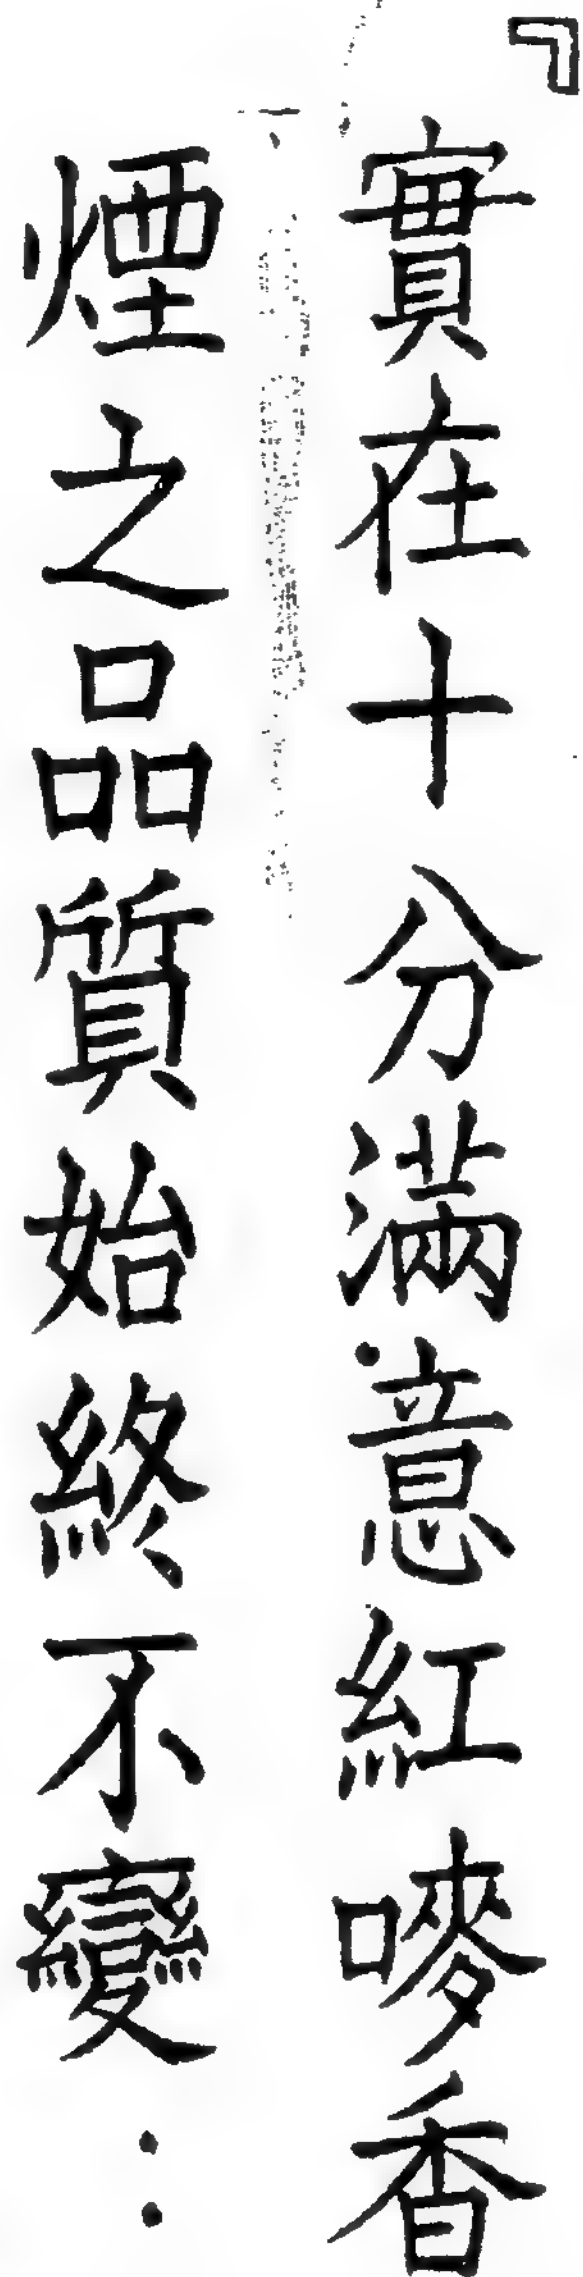 『實在十分滿意紅嘜香
煙之品質始終不變：